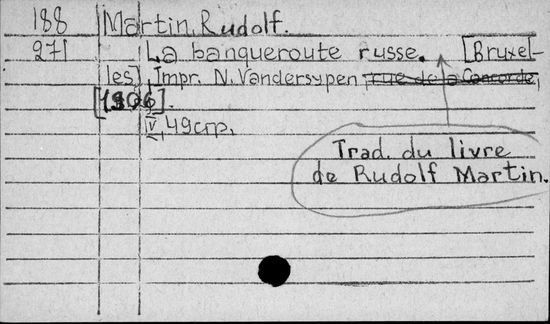 188 Martin, Rudolf.
271 La banqueroute russe. [Bruxel-
les], Impr. N. Vandersypen, rue de la Concorde,
[1906].
V, 49 p.
Trad. du livre
de Rudolf Martin.